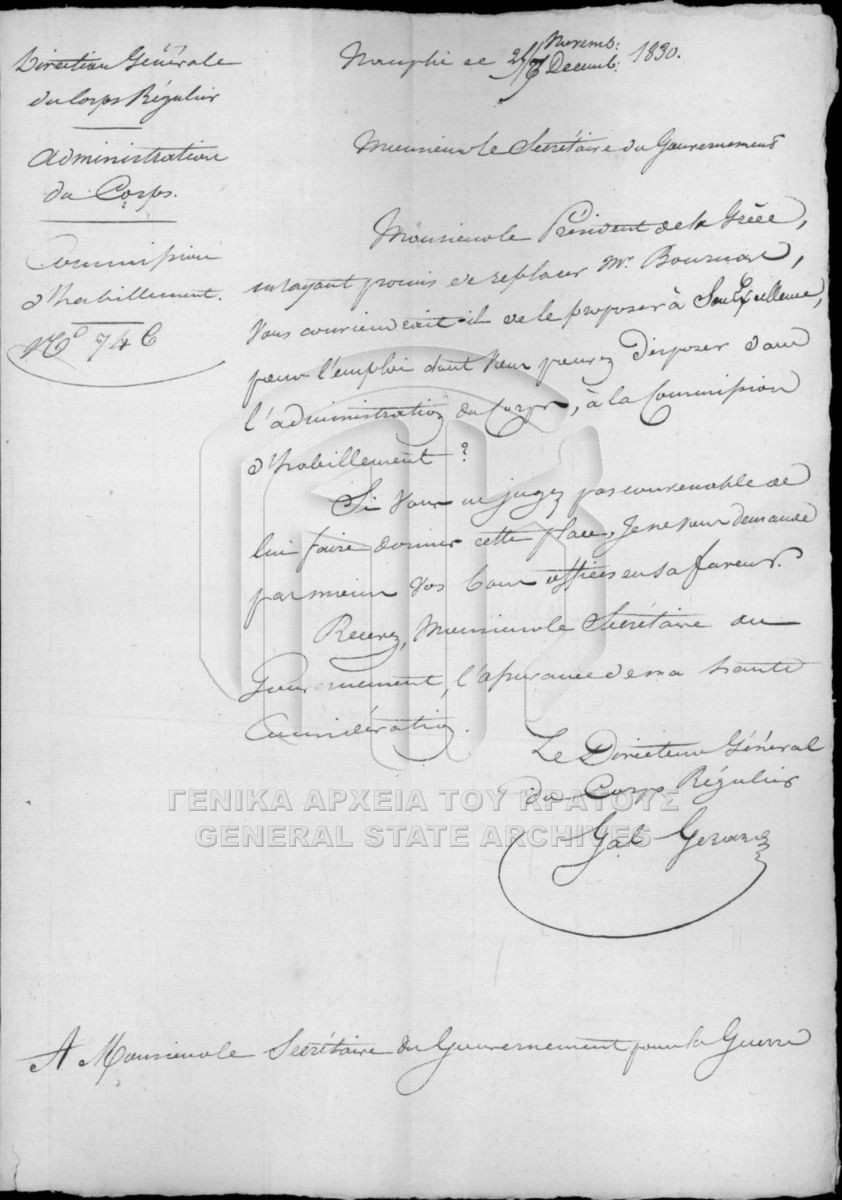 Direction Générale
du Corps Régulier
Administration
du Corps.
Commission
d'habillement.
N° 74 C
Nauplie ce 25/7 Novemb: Decemb: 1830.
Monsieur le Secrétaire du Gouvernement
Monsieur le Président de la Grèce,
m'ayant promis de replacer Mr.
Vous conviendrait-il de le proposer à Son Excellence,
pour l'emploi dont Vous pouvez disposer dans
l'administration du Corps, à la Commission
d'habillement ?
Si Vous ne jugez pas convenable de
lui faire donner cette place, Je ne vous demande
pas moins vos bons offices en sa faveur.
Recevez, Monsieur le Secrétaire du
Gouvernement, l'assurance de ma haute
Considération.
Le Directeur Général
du Corps Régulier
Gal Gerard
A Monsieur le Secrétaire du Gouvernement pour la Guerre
ΓΕΝΙΚΑ ΑΡΧΕΙΑ ΤΟΥ ΚΡΑΤΟΥΣ
GENERAL STATE ARCHIVES